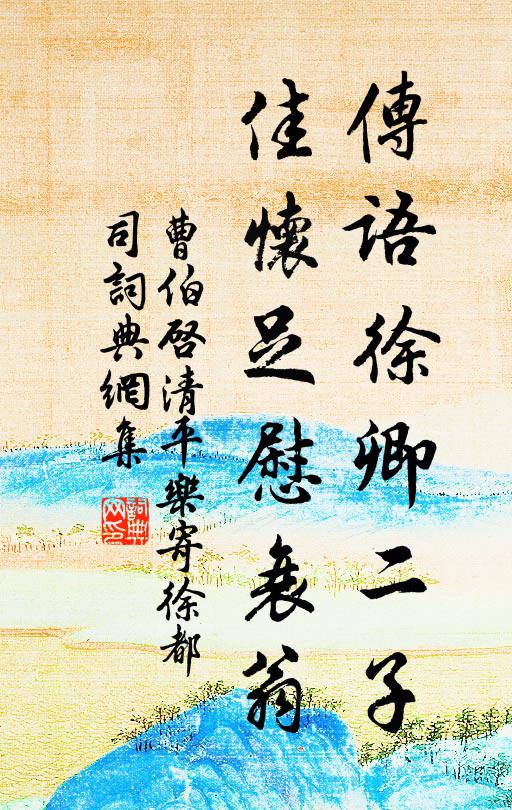 傳語徐卿二子
佳懷足慰衰翁
曹伯啓清平樂寄徐都
司詞典網集
詞典
网印